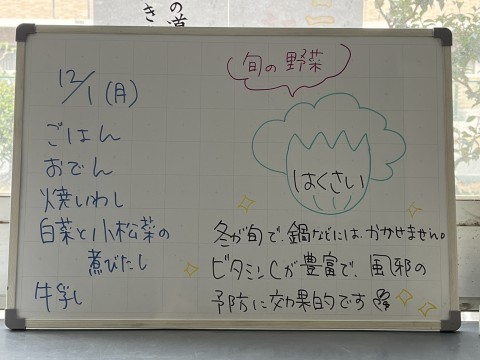 の道
き
12/1(月)
ごはん
おでん
焼いわし
白菜と小松菜の
煮びたし
牛乳
旬の野菜
はくさい
冬が旬で、鍋などにはかかせません。
ビタミンCが豊富で、風邪の
予防に効果的です